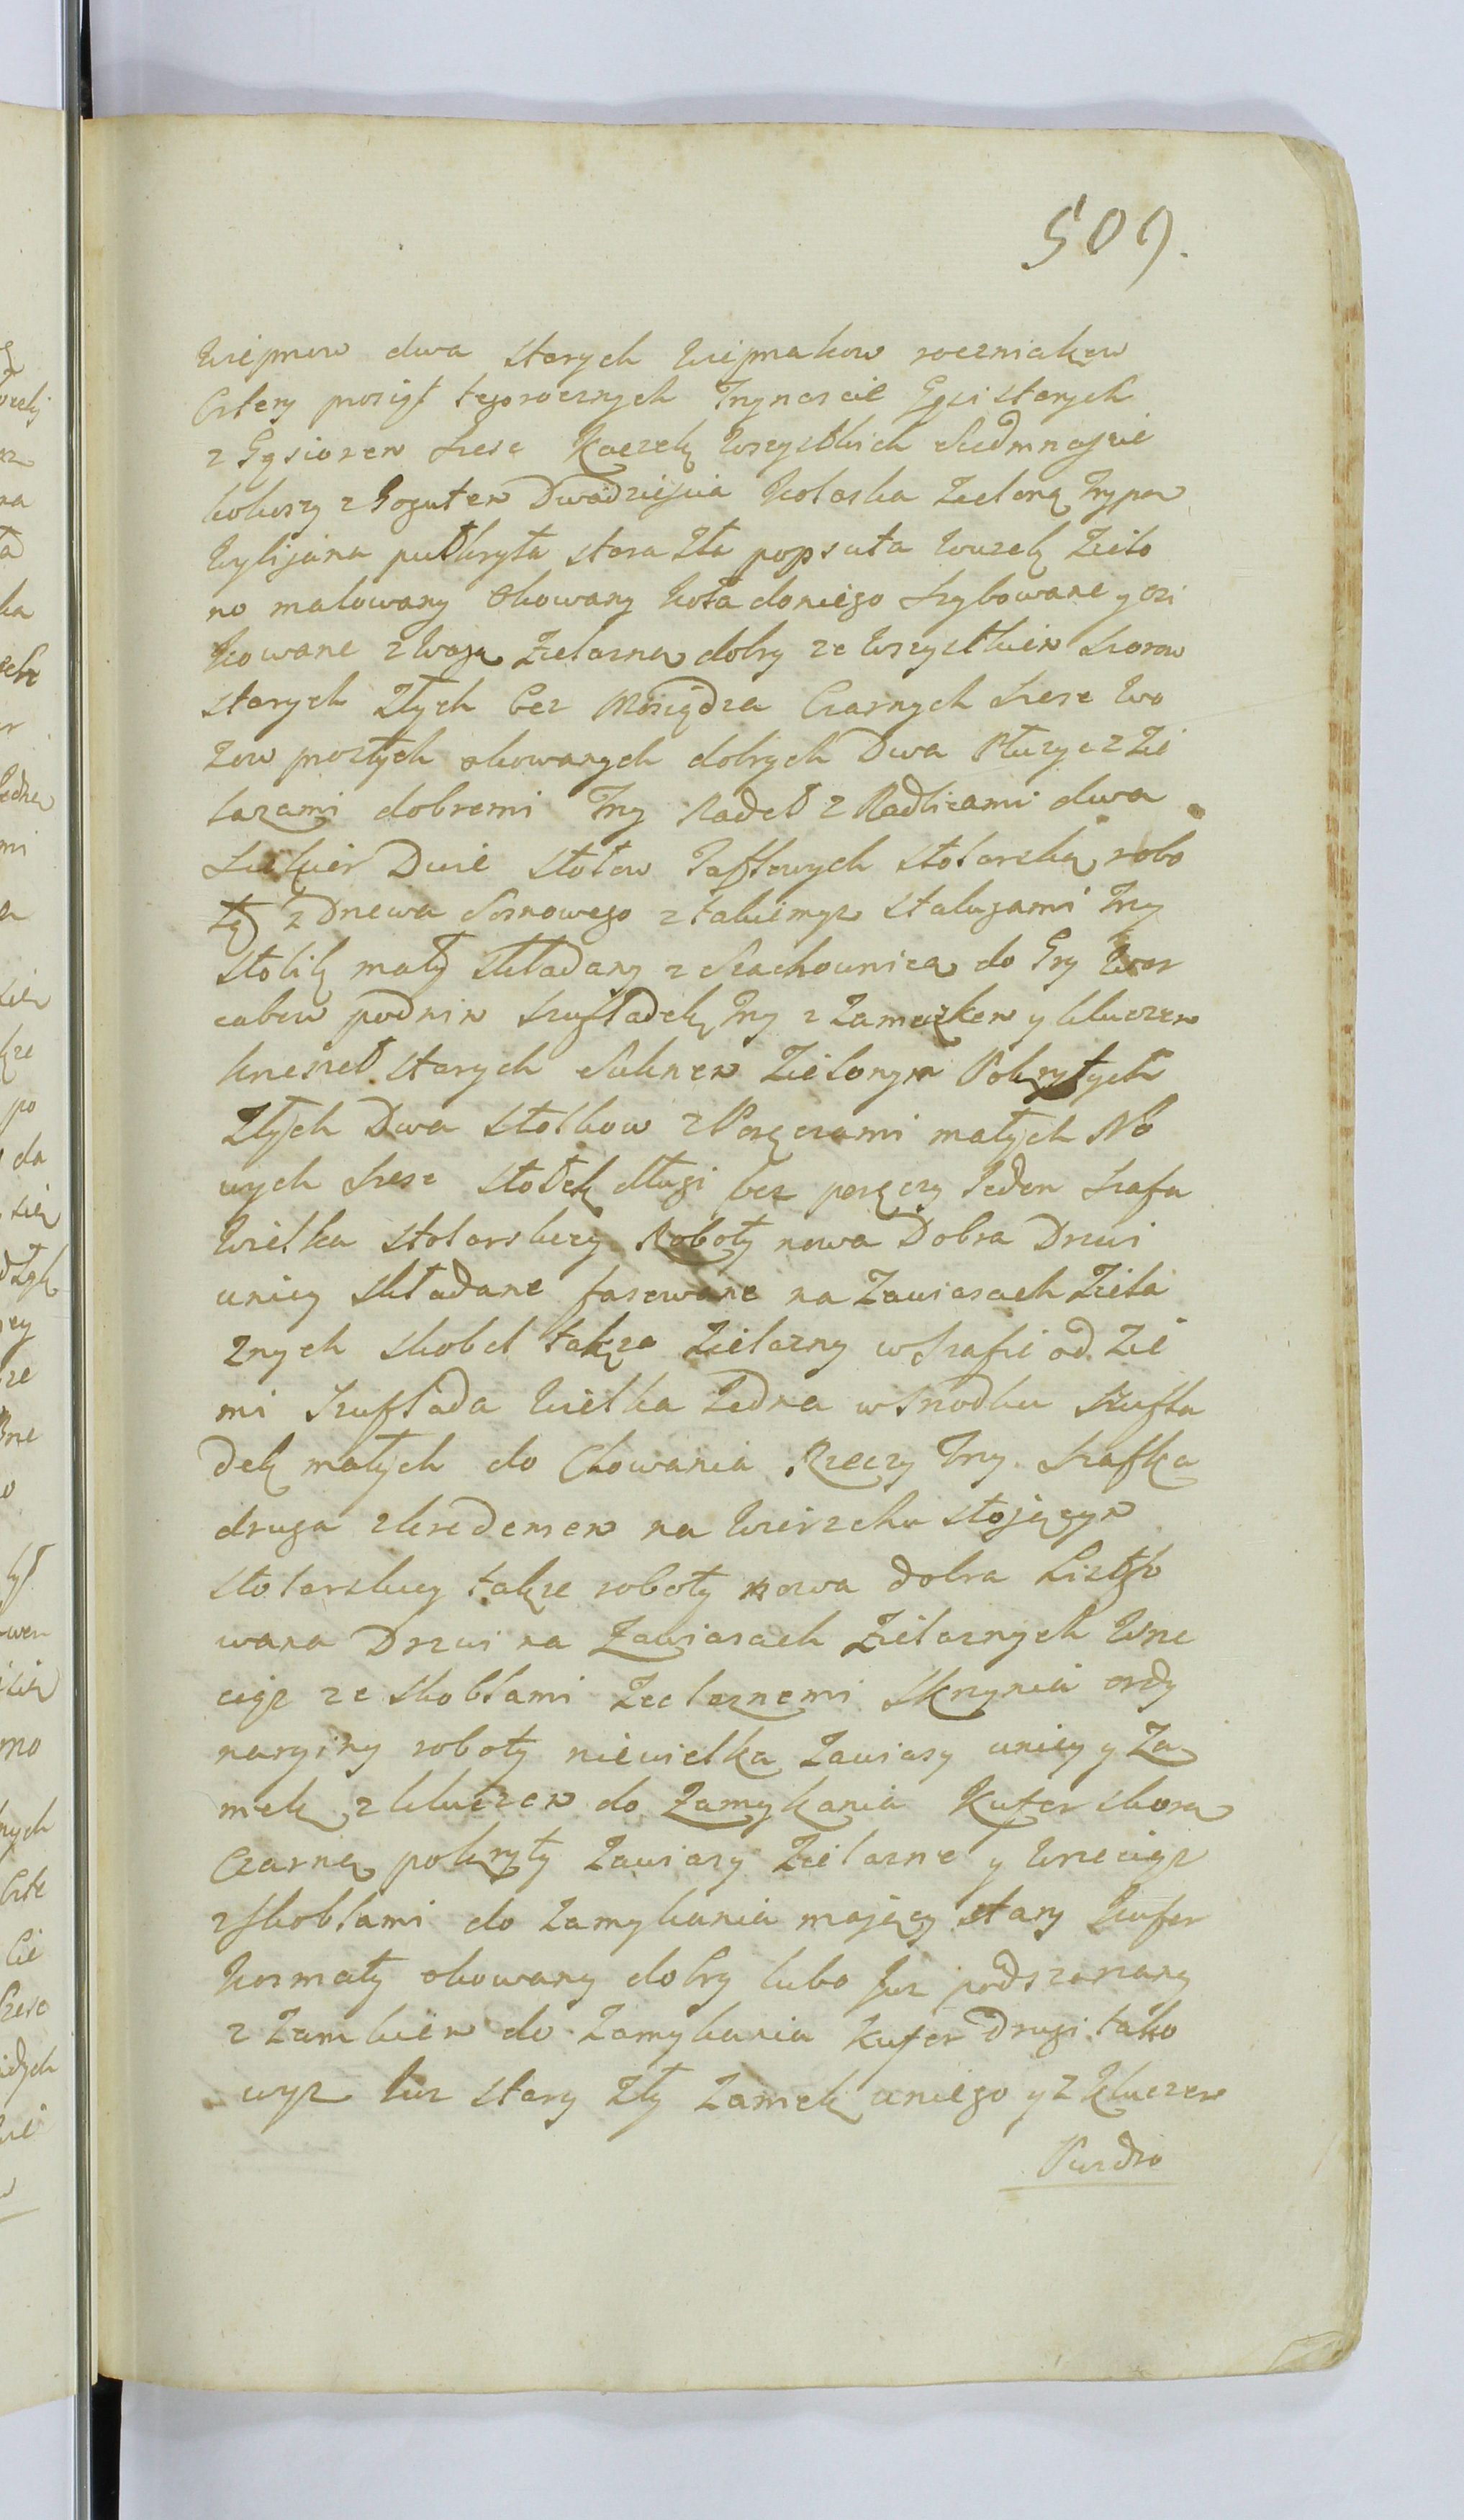 509.
Wieprzow dwa starych Wieprzakow roczniakow
Cztery prosiąt tegorocznych Trzynascie Gęsi starych
z Gąsiorem szesc Kaczek Wszystkich Siedmnascie
kokoszy z Kogutem Dwadziescia Kolaska Zieloną
Wybijana pułkryta stara Zła popsuta Wozek Zielo
no malowany Okowany Koła do niego szybowane y 
kowane z wagą Zielazną dobry ze wszystkim szorow
starych Złych bez Mosiądza Czarnych szesc Wo
zow prostych okowanych dobrych Dwa Płuzyc z Zie
lazami dobremi Trzy Radeł z Radlicami dwa
Siekier Dwie stołow Taflowych stolarską robo
tą z Drzewa Sosnowego z takiemyz stalugami Trzy
stolik mały składany z Szachownicą do Gry War
cabow pod nim szufladek Trzy z Zameczkem y kluczem
krzeseł starych Suknem Zielonym Pokrytych
Złych Dwa stołkow z Poręczami małych No
wych szesc stołek długi bez poręczy Jeden szafa
Wielka stolarskiey Roboty nowa Dobra Drzwi
uniey składane fasowane na Zawiasach Ziela
znych skobel także Zielazny w szafie od Zie
mi szuflada Wielka Jedna w srzodku szufla
dek małych do Chowania Rzeczy Trzy szafka
druga z kredensem na Wierzchu stojącym
stolarskiey także roboty nowa dobra Listwo
wana Drzwi na Zawiasach Zielaznych Wrze
ciąz ze skoblami Zielaznemi skrzynia ordy
naryiny roboty niewielka Zawiasy uniey y Za
mek z kluczem do Zamykania Kufer skorą
Czarną pokryty Zawiasy Zielazne y Wrzeciąz
z skoblami do Zamykania mający stary Kufer
kosmaty okowany dobry lubo Juz podszarzany
z Zamkiem do Zamykania Kufer Drugi tako
wyz Juz stary Zły Zamek uniego y z kluczem
Puzdro